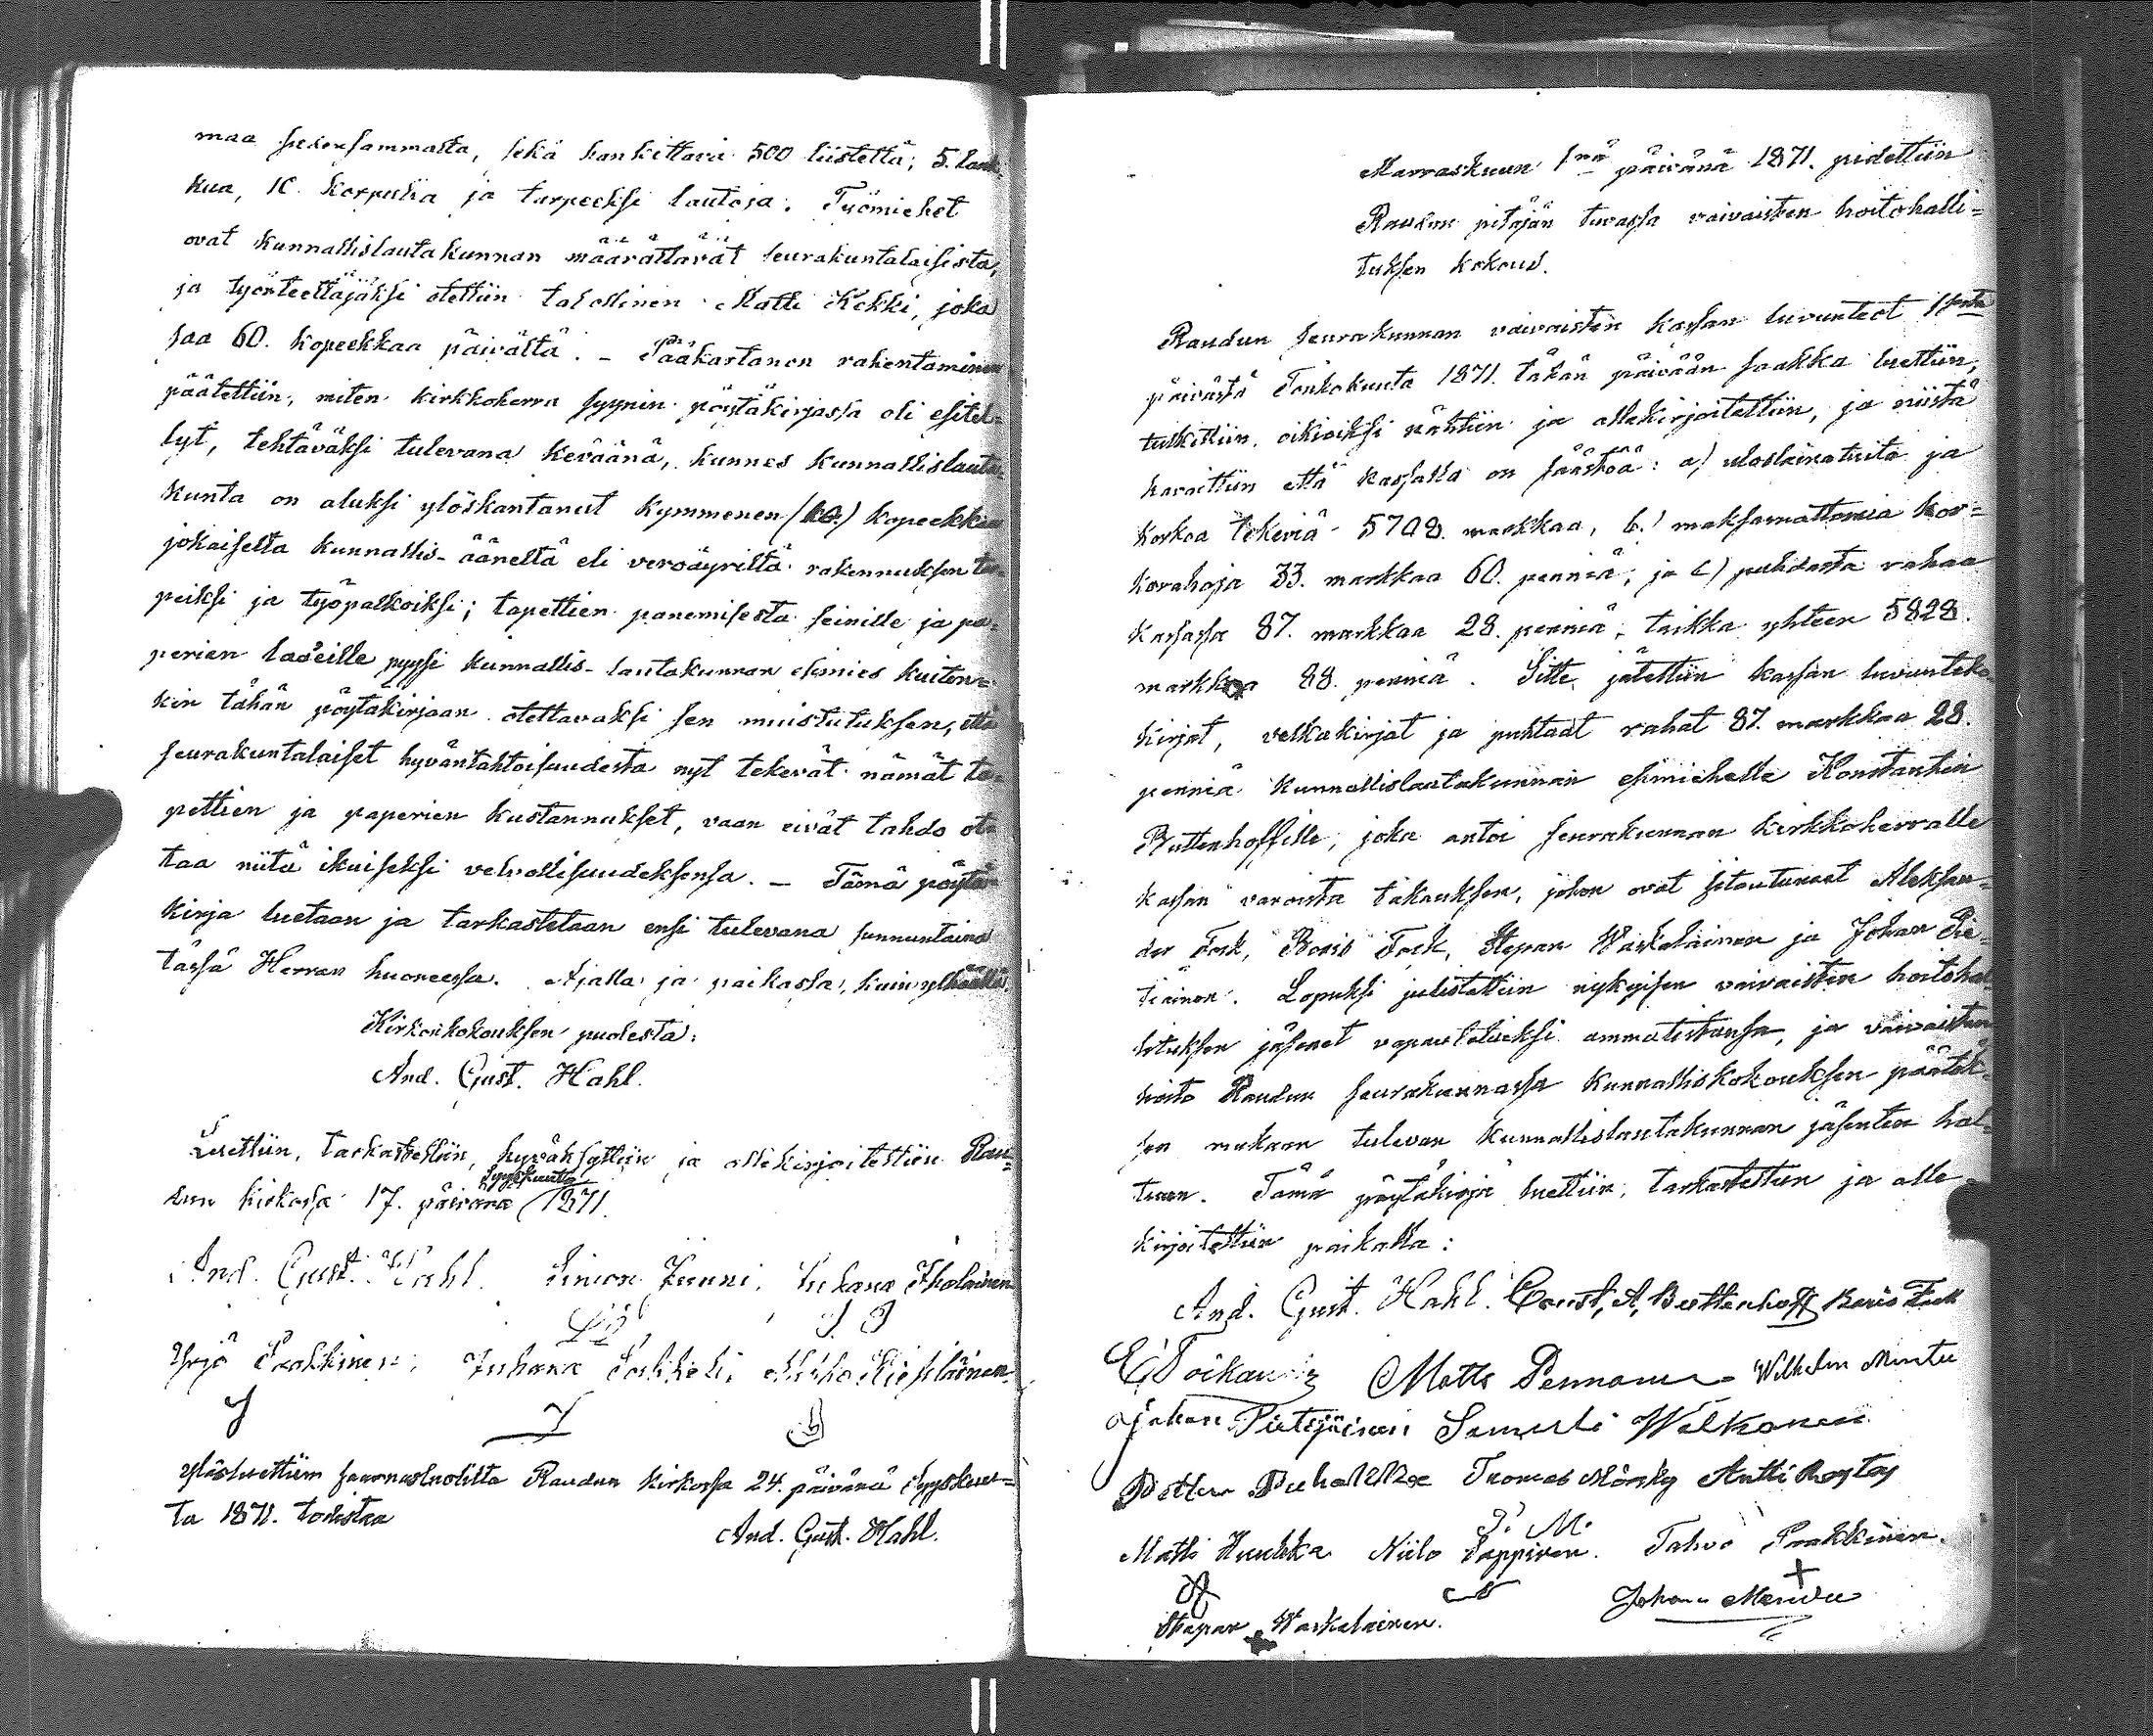 maa hirrensammalta, sekä hankittava 500 liistettä, 5. lank-
kua, 10. korpulia ja tarpeeksi lautoja. Työmiehet
ovat kunnallislautakunnan määrättävät seurakuntalaisista,
ja työnteettäjäksi otettiin talollinen Matti Kekki, joka
saa 60. kopeekkaa päivältä. – Pääkartanon rakentaminen
päätettiin, miten kirkkoherra syynin pöytäkirjassa oli esitel-
lyt, tehtäväksi tulevana keväänä, kunnes kunnallislauta-
kunta on aluksi ylöskantanut kymmenen (10.) kopeekkaa
jokaiselta kunnallis-ääneltä eli veroäyriltä rakennuksen tar-
peiksi ja työpalkoiksi; tapettien panemisesta seinille ja pa-
perien laeille pyysi kunnallis-lautakunnan esimies kuiten-
kin tähän pöytäkirjaan otettavaksi sen muistutuksen, että
seurakuntalaiset hyväntahtoisuudesta nyt tekevät nämät ta-
pettien ja paperien kustannukset, vaan eivät tahdo ot-
taa niitä ikuiseksi velvollisuudeksensa. – Tämä pöytä-
kirja luetaan ja tarkastetaan ensi tulevana sunnuntaina
tässä Herran huoneessa. Ajalla ja paikassa, kuin ylhäällä.
Kirkonkokouksen puolesta:
And. Gust. Hahl.
Luettiin, tarkastettiin, hyväksyttiin ja allekirjoitettiin Rau-
dun kirkossa 17. päivänä Syyskuuta 1871.
And. Gust. Hahl. Simon Kunni, Juhana Iholainen
J I
Yrjö Paakkinen, Juhana Mikko Kiiskläinen
Ylösluettiin saarnastuolilta Raudun kirkossa 24. päivänä Syyskuu-
ta 1871. todistaa
And. Gust. Hahl.
Marraskuun 1nä päivänä 1871. pidettiin
Raudun pitäjän tuvassa vaivaisten hoitohalli-
tuksen kokous.
Raudun seurakunnan vaivaisten kassan luvunteot 11sta
päivästä Toukokuuta 1871. tähän päivään saakka luettiin,
tutkittiin, oikioiksi nähtiin ja allekirjoitettiin, ja niistä
havaittiin että kassalla on säästöä: a) uloslainatuita ja
korkoa tekeviä 5708. markkaa, b.) maksamattomia kor-
korahoja 33. markkaa 60. penniä, ja c) puhdasta rahaa
kassassa 87. markkaa 28. penniä, taikka yhteen 5828.
markkaa 88. penniä. Sitte jätettiin kassan luvunteko-
kirjat, velkakirjat ja puhtaat rahat 87. markkaa 28.
penniä kunnallislautakunnan esimiehelle Konstantin
Buttenhoffille, joka antoi seurakunnan kirkkoherralle
kassan varoista takauksen, johon ovat sitoutuneet Aleksan-
der Fock, Boris Fock, Stepan Waskelainen ja Johan Pie-
tiäinen. Lopuksi julistettiin nykyisen vaivaisten hoitohal-
lituksen jäsenet vapautetuiksi ammatistansa, ja vaivaisten
hoito Raudun seurakunnassa kunnalliskokouksen päätök-
sen mukaan tulevan kunnallislautakunnan jäsenten hal-
tuun. Tämä pöytäkirja luettiin, tarkastettiin ja alle-
kirjoitettiin paikalla:
And. Gust. Hahl. Const. A. Buttenhoff Boris Fock
E Toikan Matts Pennanen Wilhelm Mintu
Johan Pietijäinen Samuli Walkonen
Petter Puhakka Tuomas Mörsky Antti Röytty
T. M.
Matti Kuukka Niilo Pappinen. Tahvo Paakkinen.
Stepan Waskelainen. Johan